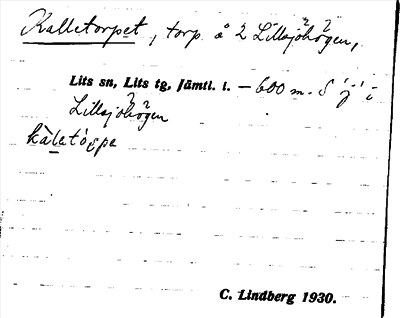 Kalletorpet, torp å 2 Lillsjöhögen,
Lits sn, Lits tg, Jämtl. l. — 600 m. S
Lillsjöhögen
C. Lindberg 1930.